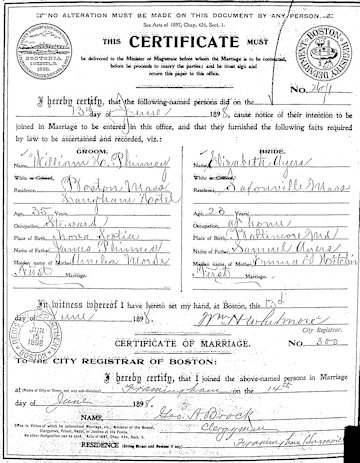 NO ALTERATION MUST BE MADE ON THIS DOCUMENT BY ANY PERSON.
See Acts of 1897, Chap. 424, Sect. 5.
THIS CERTIFICATE MUST
be delivered to the Minister or Magistrate before whom the Marriage is to be contracted,
before he proceeds to marry the parties; and he must sign and
return this paper to this office.
BOSTONIA
BOSTON. REGISTRY DEPARTMENT
No.
I hereby certify, that the following-named persons did on the
13th day of June 1898, cause notice of their intention to be
joined in Marriage to be entered in this office, and that they furnished the following facts required
by law to be ascertained and recorded, viz.:
GROOM.
Name, William H. Phinney
White or Colored,
Residence, Boston Mass
Langham Hotel
Age, 35 Years.
Occupation, Steward
Place of Birth, Nova Scotia
Name of Father, James Phinney
Maiden name of Mother, Amelia Morse
First Marriage.
BRIDE.
Name, Elizabeth Ayers
White or Colored,
Residence, Saxonville Mass
Age, 23 Years.
Occupation, at home
Place of Birth, Baltimore Md
Name of Father, Samuel Ayers
Maiden name of Mother,
First Marriage.
In witness whereof I have hereto set my hand, at Boston, this
June 1898.
Wm H Whitmore
City Registrar.
JUN 1898
CERTIFICATE OF MARRIAGE. No. 300
TO THE CITY REGISTRAR OF BOSTON:
I hereby certify, that I joined the above-named persons in Marriage
at Framingham on the 14th
(Name of City or Town, not any sub-division)
June 1898.
NAME, Geo. A. Brock
Clergyman
Office in Virtue of which he solemnized Marriage, viz., Minister of the Gospel,
Clergyman, Priest, Rabbi, or Justice of the Peace.
No other designation can be used. Acts of 1897, Chap. 424, Sect. 5.
RESIDENCE (Giving Street and Number if any)